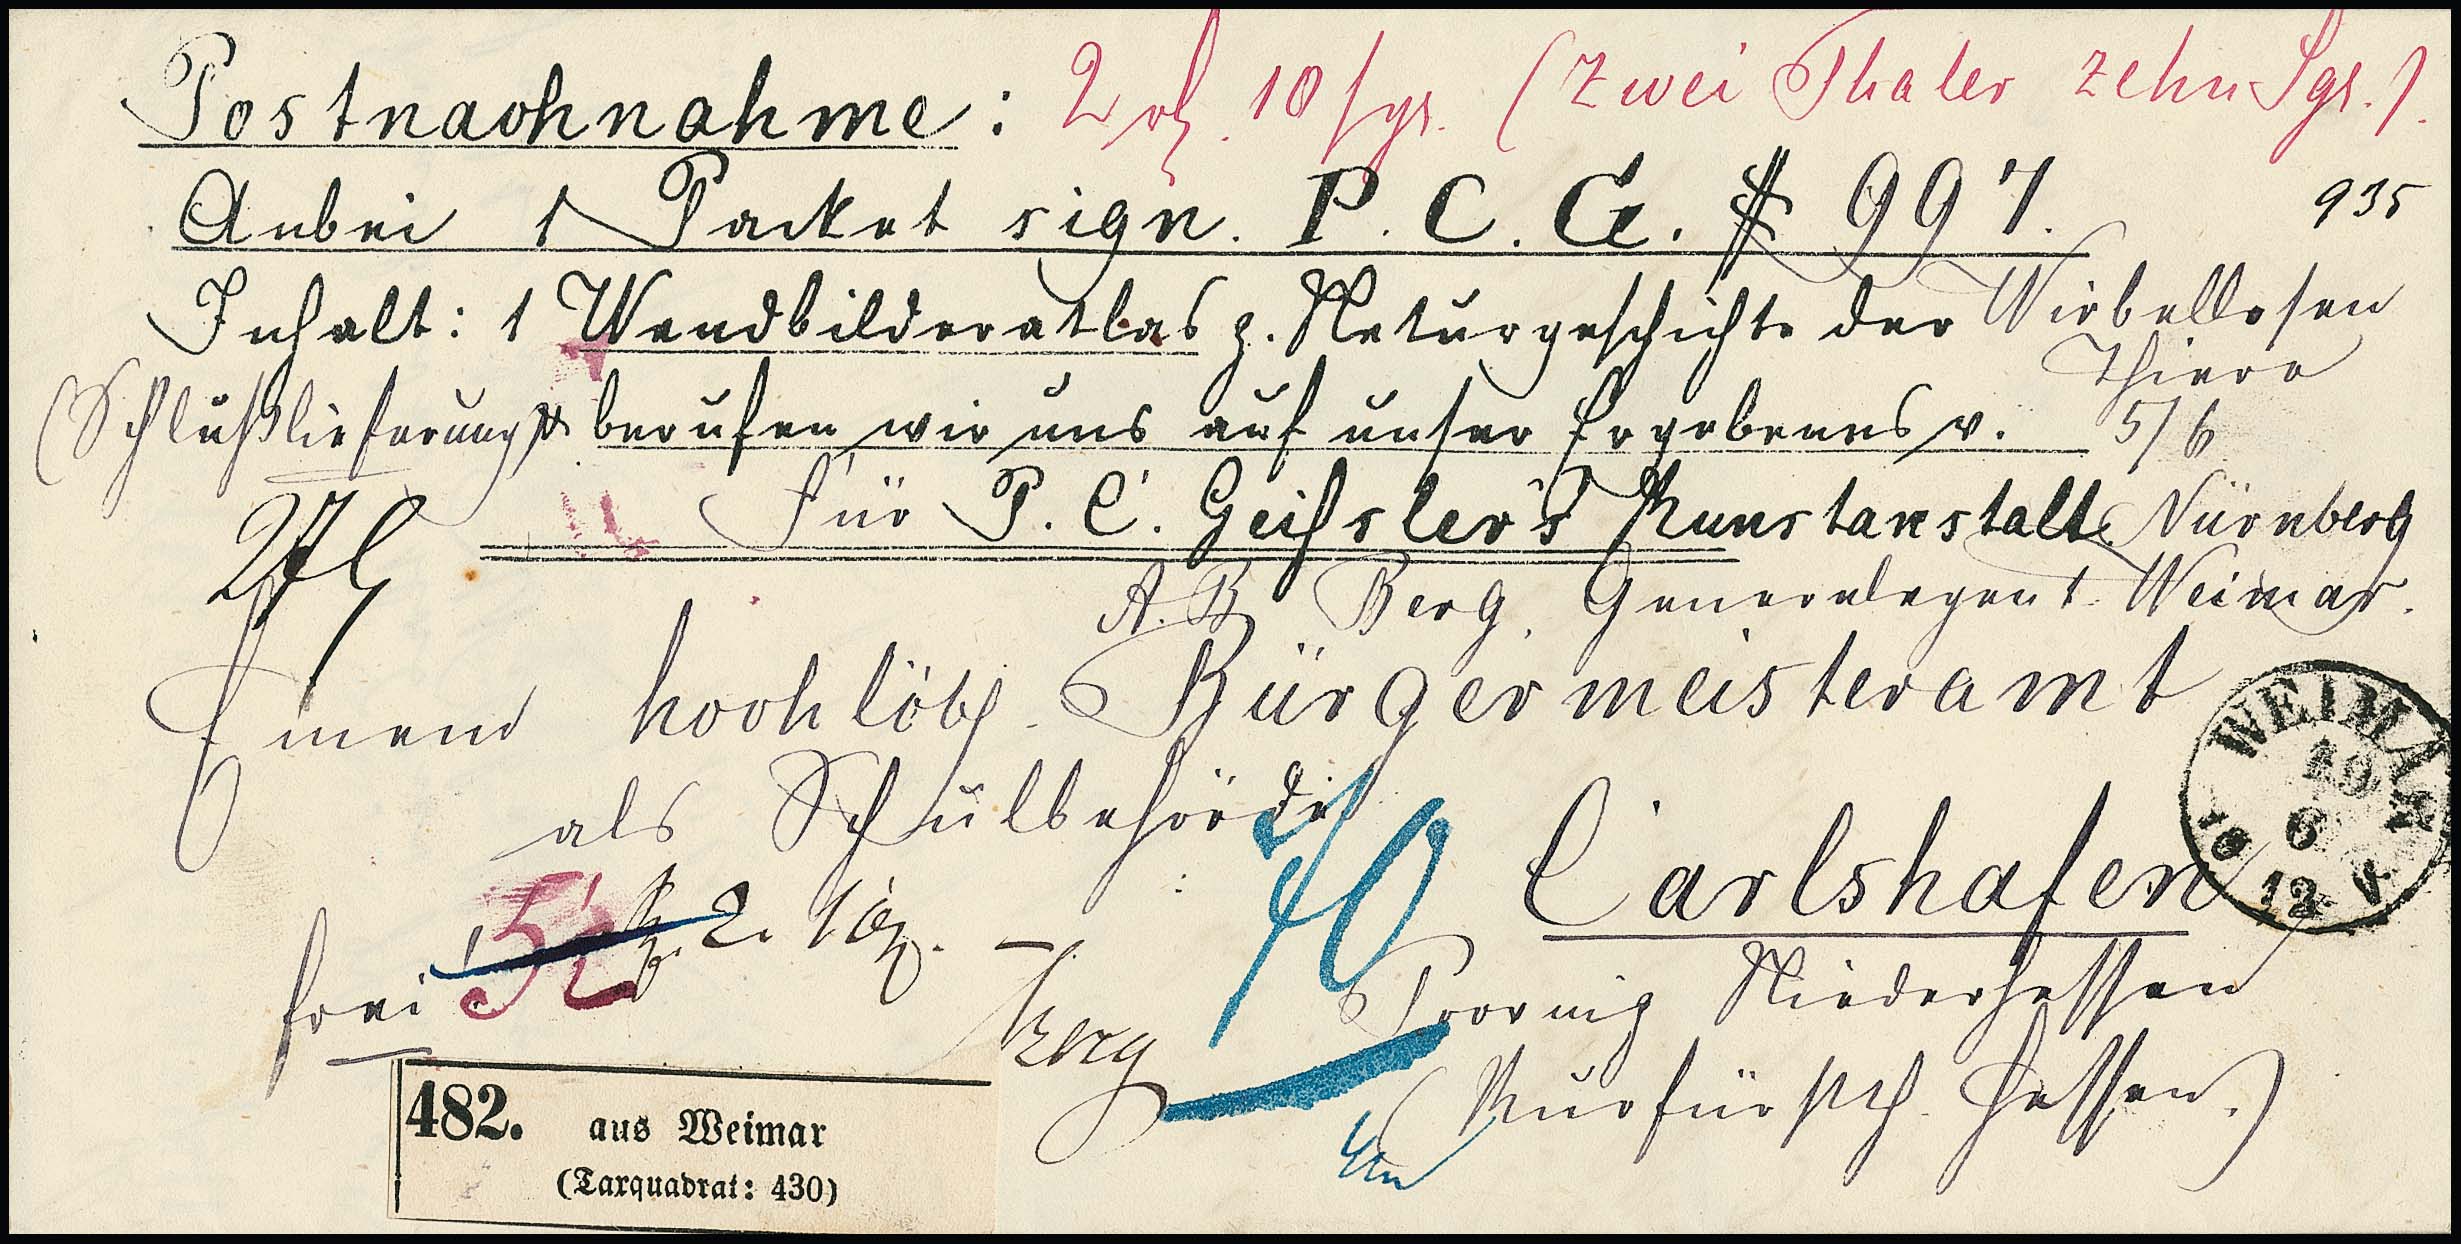 Postnachnahme: 2 rh. 10 sgr. (Zwei Thaler zehn Sgr.)
Anbei 1 Packet sign. P. C. G. # 997.
935
Inhalt: 1 Wandbilderatlas z. Naturgeschichte der Wirbellosen
Thiere
(Schlußlieferung) & berufen wir uns auf unser Ergebenes v. 5/6
Für P. C. Geißler's Kunstanstalt Nürnberg
A. B. Berg, Generalagent Weimar.
Einem hochlöbl. Bürgermeisteramt
als Schulbehörde
Carlshafen
frei 2. 10
Berg
70
Provinz Niederhessen
(Kurfürstth. Hessen.)
WEIMAR
19
6
12
482. aus Weimar
(Taxquadrat: 430)